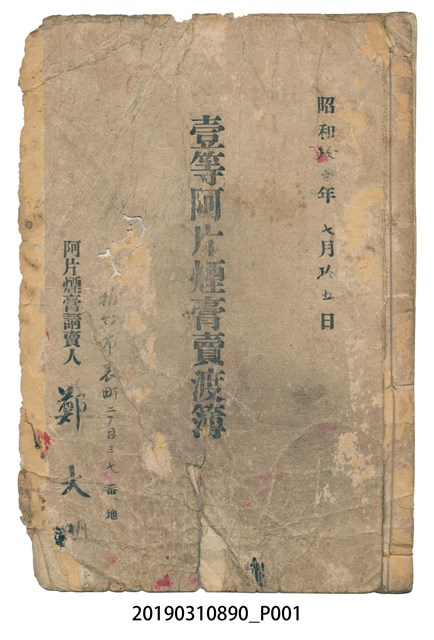 昭和拾年七月拾五日
壹等阿片煙膏賣渡簿
新竹市表町二丁目三七番地
阿片煙膏請賣人
鄭大明
20190310890_P001